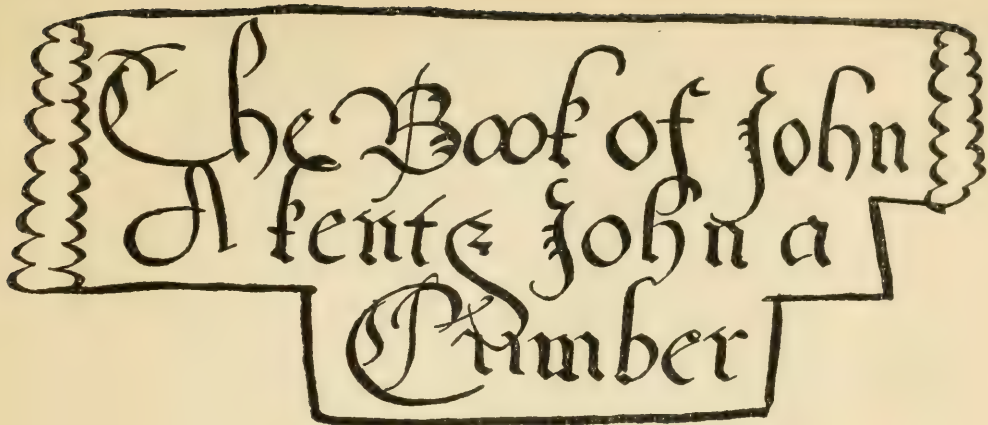 The Book of John
A kent & John a
Cumber